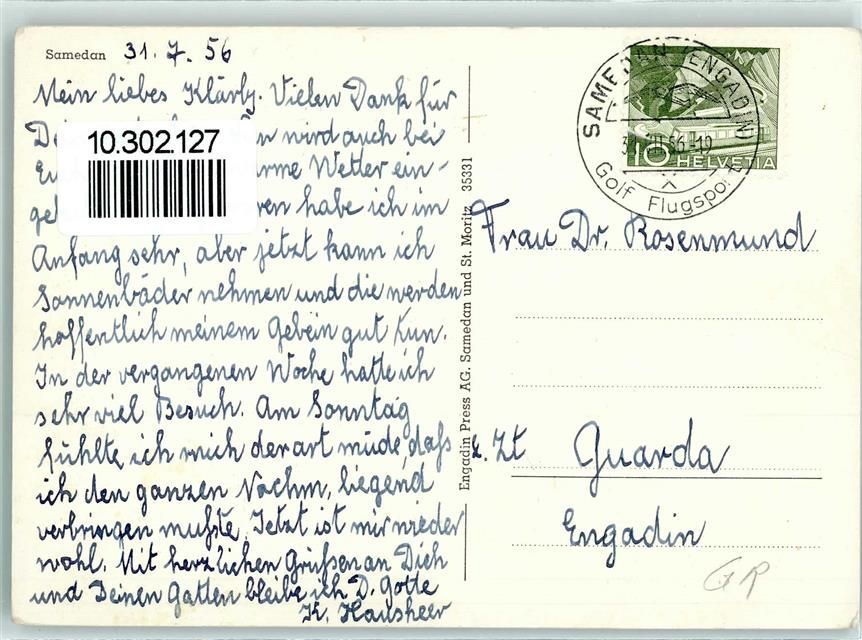 Samedan 31. 7. 56
Mein liebes Klärly. Vielen Dank für
wird auch bei
Wetter ein-
habe ich im
Anfang sehr, aber jetzt kann ich
Sonnenbäder nehmen und die werden
hoffentlich meinem Gebein gut tun.
In der vergangenen Woche hatte ich
sehr viel Besuch. Am Sonntag
fühlte ich mich derart müde, daß
ich den ganzen Nachm. liegend
verbringen mußte. Jetzt ist mir wieder
wohl. Mit herzlichen Grüßen an Dich
und Deinen Gatten bleibe ich D. Gotte
K. Hausheer
10.302.127
Engadin Press AG. Samedan und St. Moritz 35331
SAMEDAN (ENGADIN)
Golf Flugsport
10 HELVETIA
Frau Dr. Rosenmund
z. Zt Guarda
Engadin
GR